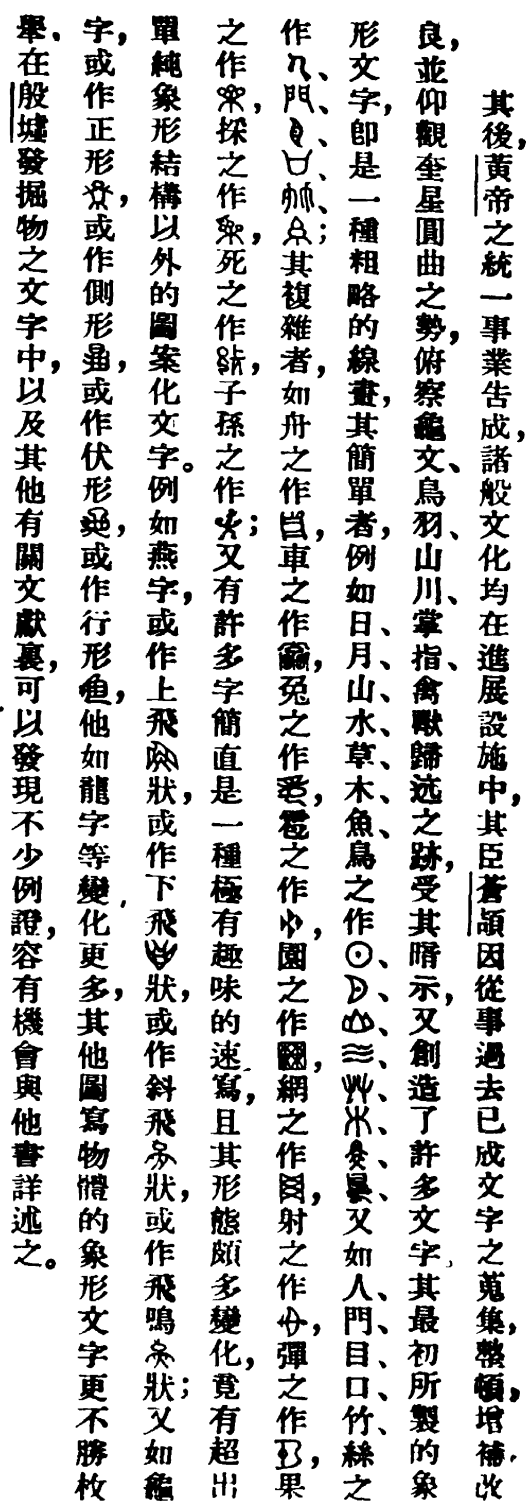 其後,黃帝之統一事業告成,諸般文化均在進展設施中,其臣蒼頡因從事過去已成文字之蒐集,整頓,增補,改
良,並仰觀奎星圓曲之勢,俯察龜文、鳥羽、山川、掌指、禽獸蹄迒之跡,受其暗示,又創造了許多文字,其最初所製的象
形文字,即是一種粗略的線畫,其簡單者,例如日、月、山、水、草、木、魚、鳥之作、、、、、、、、又如人、門、目、口、竹、絲之
作、、、、、;其複雜者,如舟之作,車之作,兔之作,雹之作,園之作,網之作,射之作,彈之作,果
之作,採之作,死之作,子孫之作;又有許多字簡直是一種極有趣味的速寫,且其形態頗多變化,竟有超出
單純象形結構以外的圖案化文字。例如燕字,或作上飛狀,或作下飛狀,或作斜飛狀,或作飛鳴狀;又如龜
字,或作正形,或作側形,或作伏形,或作行形,他如龍字等變化更多,其他圖寫物體的象形文字更不勝枚
舉、在殷墟發掘物之文字中,以及其他有關文獻裏,可以發現不少例證,容有機會與他書詳述之。